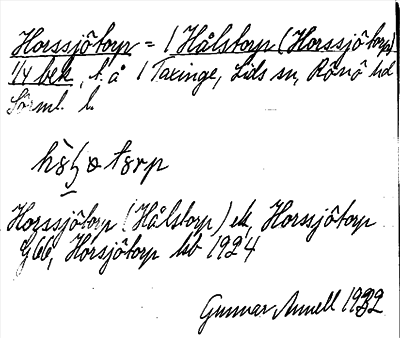 Horssjötorp = 1 Hålstorp (Horssjötorp)
1/4 bek, t. å 1 Taxinge, Lids sn, Rönö hd
Sörml. l.
Horssjötorp (Hålstorp) ek, Horssjötorp
G66, Horsjötorp 1924
Gunnar Annell 1932